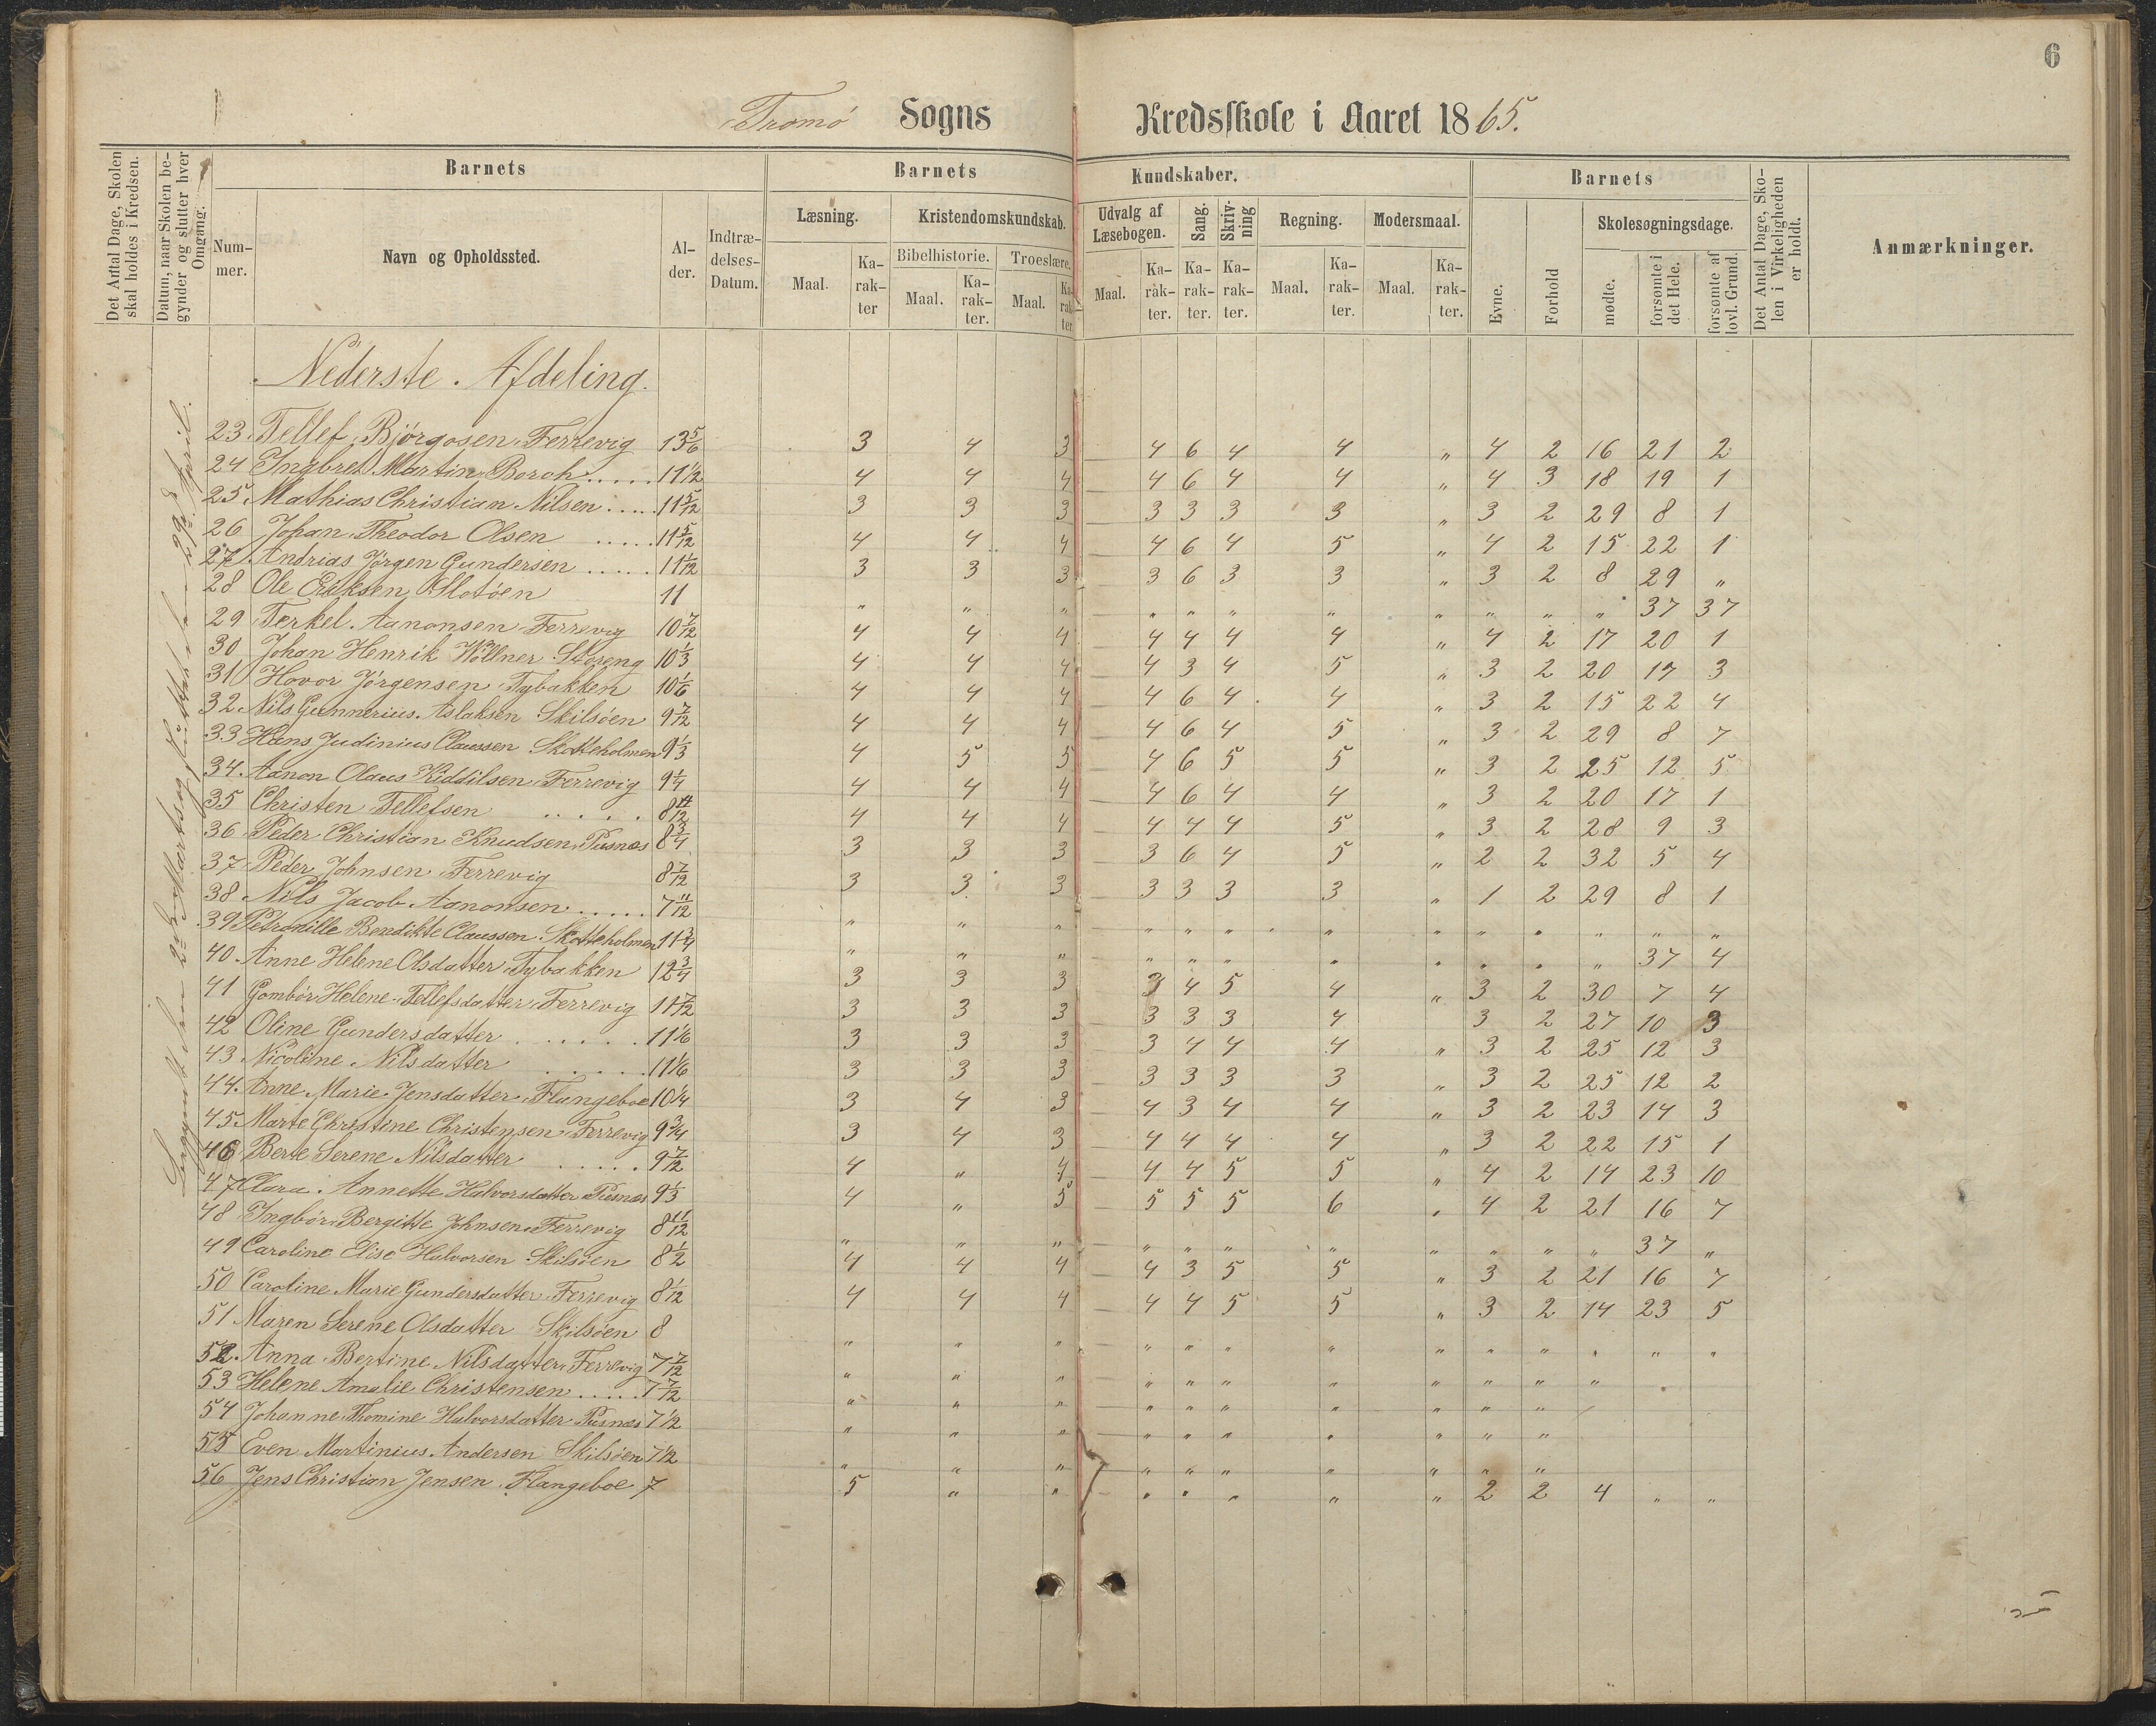 6
Tromø Sogns Kredsskole i Aaret 1865.
Det Antal Dage, Skolen skal holdes i Kredsen.
Datum, naar Skolen begynder og slutter hver Omgang.
Barnets
Barnets Kundskaber.
Barnets
Det Antal Dage, Skolen i Virkeligheden er holdt.
Anmærkninger.
Nummer.
Navn og Opholdssted.
Alder.
Indtrædelses-Datum.
Læsning.
Kristendomskundskab.
Udvalg af Læsebogen.
Sang.
Skrivning
Regning.
Modersmaal.
Evne.
Forhold
Skolesøgningsdage.
Bibelhistorie.
Troeslære.
Maal. Karakter Maal. Karakter. Maal. Karakter. Maal. Karakter. Karakter. Karakter. Maal. Karakter. Maal. Karakter. mødte. forsømte i det Hele. forsømte af lovl. Grund.
Nederste Afdeling.
23. Tellef Bjørgosen Ferrevig 13 5/6 3 4 3 4 6 4 4 „ 4 2 16 21 2
24 Ingbret Martin Borch ..... 11 1/2 4 4 4 4 6 4 4 „ 4 3 18 19 1
25. Mathias Christian Nilsen ..... 11 5/12 3 3 3 3 3 3 3 „ 3 2 29 8 1
26 Johan Theodor Olsen ..... 11 5/12 4 4 4 4 6 4 5 „ 4 2 15 22 1
27 Andrias Jørgen Gundersen ..... 11 1/12 3 3 3 3 6 3 3 „ 3 2 8 29 „
28 Ole Eriksen 11 „ „ „ „ „ „ „ „ „ „ „ 37 37
29 Terkel Aanonsen Ferrevig 10 7/12 4 4 4 4 4 4 4 „ 4 2 17 20 1
30 Johan Henrik Wøllner Storeng 10 1/3 4 4 4 4 3 4 5 „ 3 2 20 17 3
31 Hovor Jørgensen Tybakken 10 1/6 4 4 4 4 6 4 4 „ 3 2 15 22 4
32. Nils Gunnerius Aslaksen Skilsøen 9 7/12 4 4 4 4 6 4 5 „ 3 2 29 8 7
33 Hans Judinius Claussen Skotteholmen 9 1/3 4 5 5 4 6 5 5 „ 3 2 25 12 5
34. Aanon Olaus Kiddilsen Ferrevig 9 1/4 4 4 4 4 6 4 4 „ 3 2 20 17 1
35 Christen Tellefsen ..... 8 11/12 4 4 4 4 4 4 5 „ 3 2 28 9 3
36 Peder Christian Knudsen Pusnæs 8 3/4 3 3 3 3 6 4 5 „ 2 2 32 5 4
37 Peder Johnsen Ferrevig 8 7/12 3 3 3 3 3 3 3 „ 1 2 29 8 1
38. Nils Jacob Aanonsen ..... 7 11/12 „ „ „ „ „ „ „ „ „ „ „ „ „
39 Petronille Benedikte Claussen Skotteholmen 11 3/4 „ „ „ „ „ „ „ „ „ „ „ 37 4
40. Anne Helene Olsdatter Tybakken 12 3/4 3 3 3 3 4 5 4 „ 3 2 30 7 4
41 Gombør Helene Tellefsdatter Ferrevig 11 7/12 3 3 3 3 3 3 4 3 2 27 10 3
42 Oline Gundersdatter ..... 11 1/6 3 3 3 3 4 4 4 „ 3 2 25 12 3
43 Nicoline Nilsdatter ..... 11 1/6 3 3 3 3 3 3 3 „ 3 2 25 12 2
44. Anne Marie Jensdatter Flangeboe 10 1/4 3 4 3 4 3 4 4 „ 3 2 23 14 3
45 Marte Christine Christensen Ferrevig 9 3/4 3 4 3 4 4 4 4 „ 3 2 22 15 1
46 Berte Serene Nilsdatter ..... 9 7/12 4 „ 4 4 4 5 5 „ 4 2 14 23 10
47 Clara Annette Halvorsdatter Pusnæs 9 1/3 4 „ 5 5 5 5 6 „ 4 2 21 16 7
48 Ingbør Bergitte Johnsen Ferrevig 8 11/12 „ „ „ „ „ „ „ „ „ „ „ 37 „
49 Caroline Elise Halvorsen Skilsøen 8 1/2 4 4 4 4 3 5 5 „ 3 2 21 16 7
50 Caroline Marie Gundersdatter Ferrevig 8 1/12 4 4 4 4 4 5 5 „ 3 2 14 23 5
51 Maren Serene Olsdatter Skilsøen 8 „ „ „ „ „ „ „ „ „ „ „ „ „
52. Anna Bertine Nilsdatter Ferrevig 7 7/12 „ „ „ „ „ „ „ „ „ „ „
53 Helene Amalie Christensen ..... 7 7/12 „ „ „ „ „ „ „ „ „ „
54 Johanne Thomine Halvorsdatter Pusnæs 7 1/2 „ „ „ „ „ „ „ „ „ „
55 Even Martinius Andersen Skilsøen 7 1/2 „ „ „ „ „ „ „ „ „ „
56 Jens Christian Jensen Flangeboe 7 5 „ „ „ „ „ „ „ 2 2 4 „ „